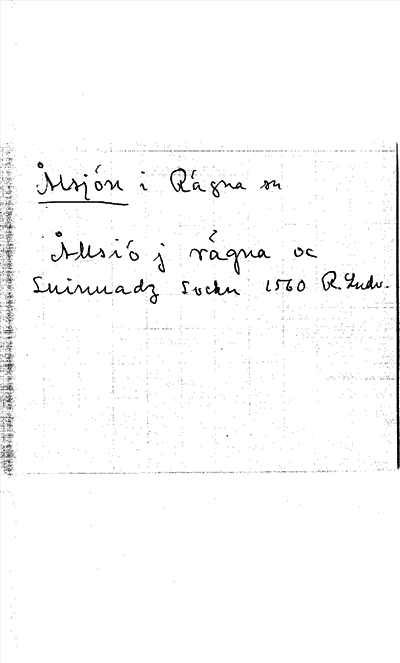 Ålsjön i Rågna sn
Ålsiö j rågna oc
Suinnadz Sockn 1560 R. Ludv.